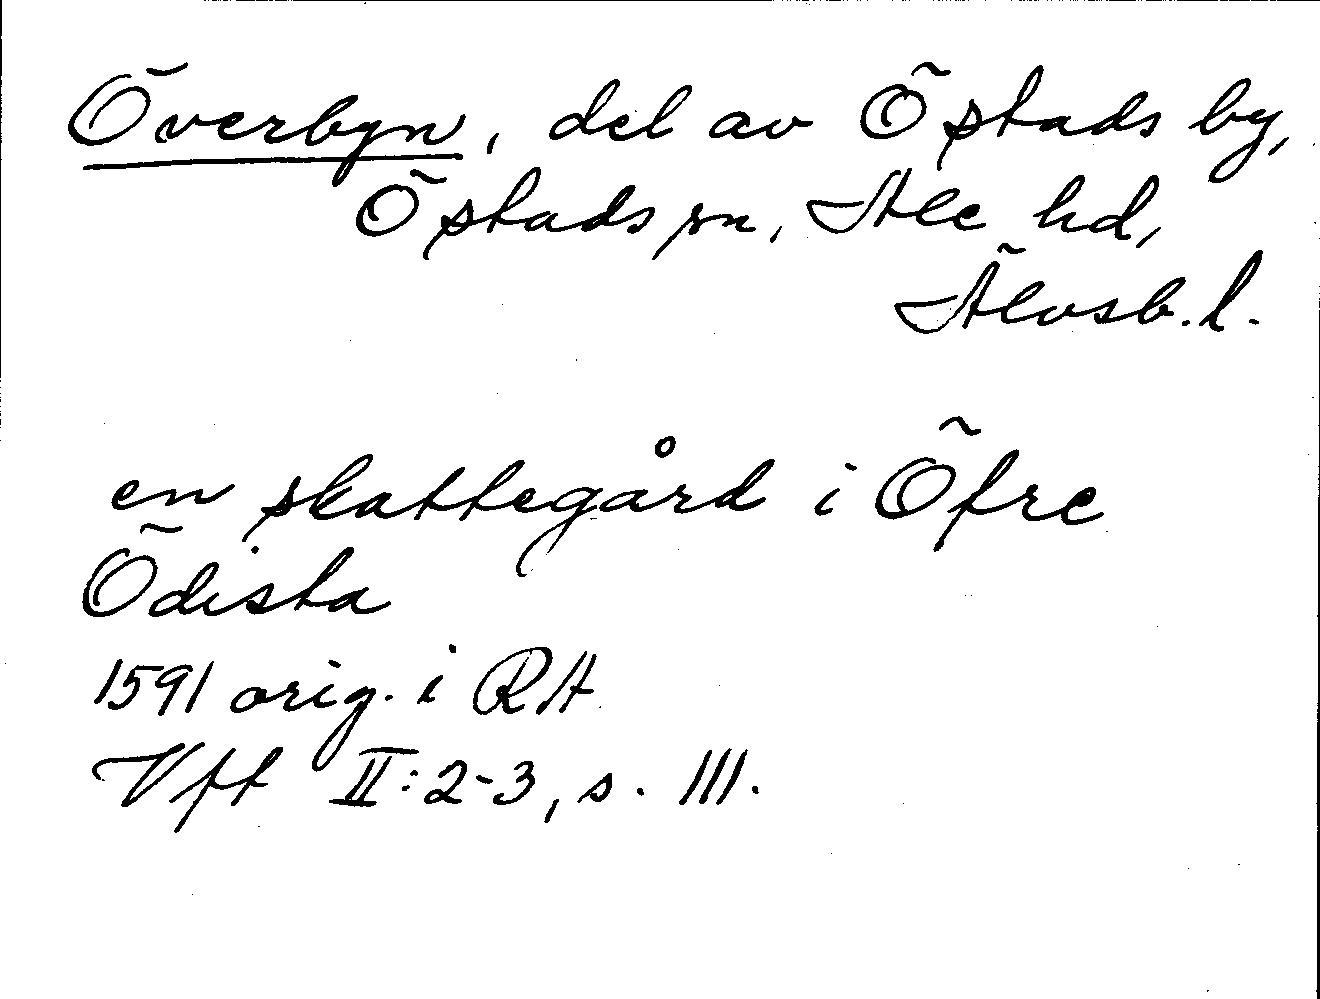 Överbyn, del av Östads by,
Östads sn, Ale hd,
Älvsb. l.
en skattegård i Öfre
Ödista
1591 orig. i RA
Vft II:2-3, s. 111.